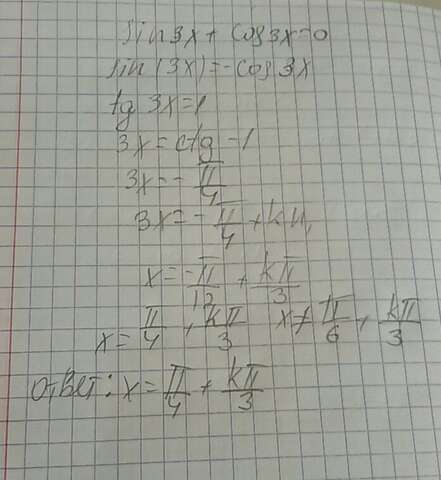 sin 3x + cos 3x = 0
sin (3x) = -cos 3x
tg 3x = 1
3x = ctg -1
3x = - π/4
3x = - π/4 + kπ,
x = -π/12 + kπ/3
x = π/4, kπ/3 x ≠ π/6, kπ/3
ответ: x = π/4 + kπ/3